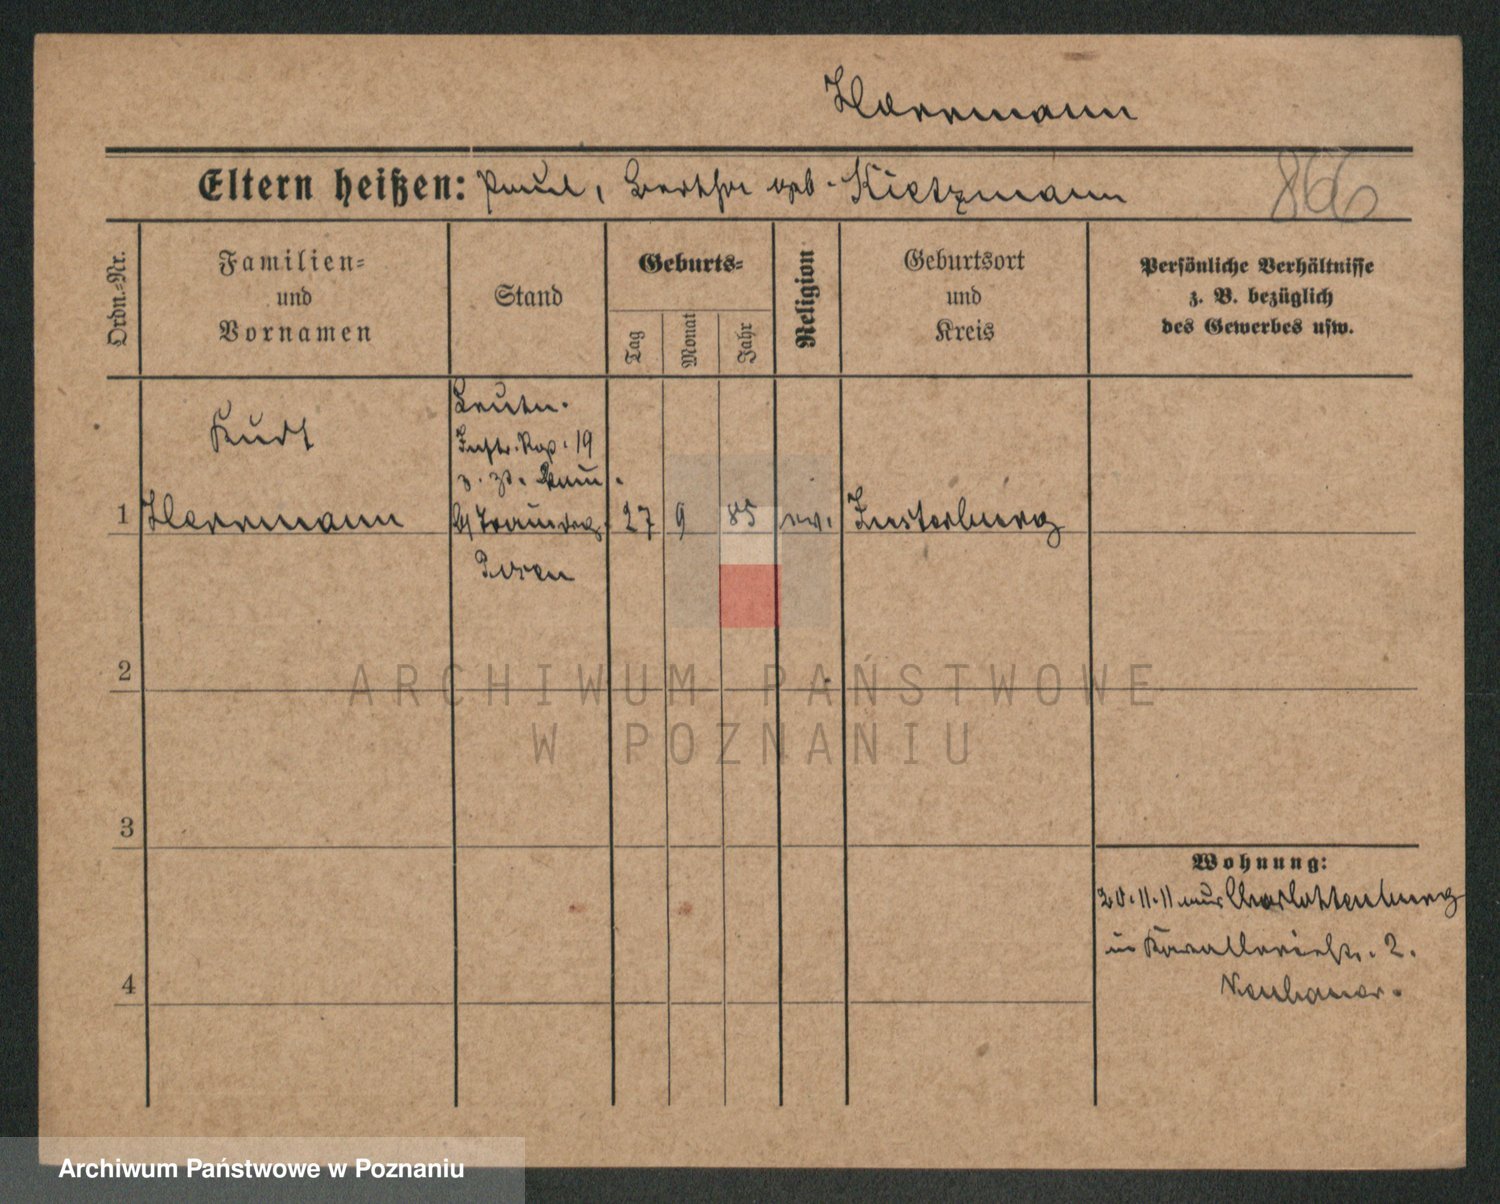 Herrmann
Eltern heißen: Paul, Bertha geb. Kietzmann
866
Ordn.-Nr.
Familien-
und
Vornamen
Stand
Geburts-
Tag
Monat
Jahr
Religion
Geburtsort
und
Kreis
Persönliche Verhältnisse
z. B. bezüglich
des Gewerbes usw.
Kurt
Leutn.
19
z. Zt.
1 Herrmann
27 9 85 ev. Insterburg
Posen
2
ARCHIWUM PAŃSTWOWE
W POZNANIU
3
Wohnung:
20.11.11 aus Charlottenburg
in 2.
4
Neubauer.
Archiwum Państwowe w Poznaniu